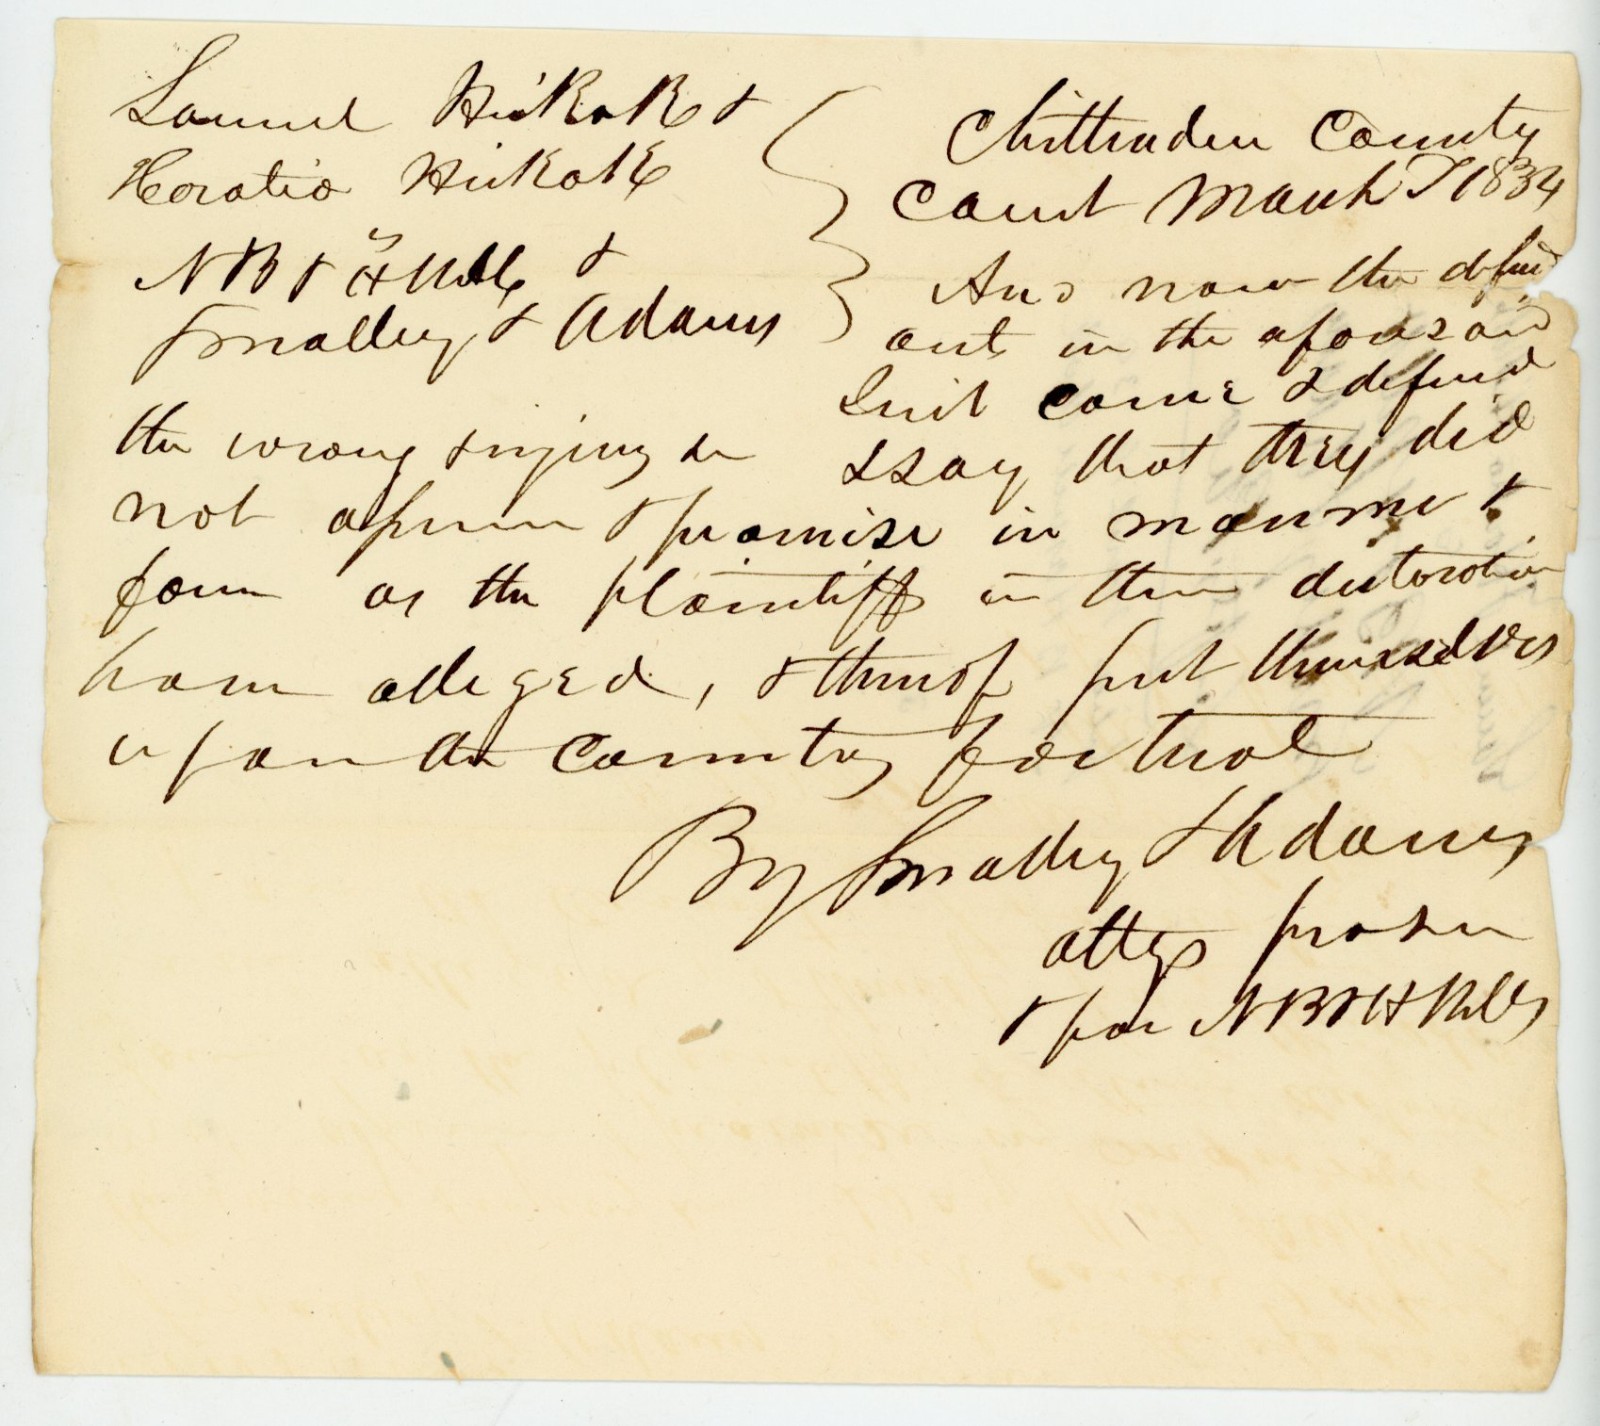 Samuel Hickok &
Horatio Hickok
vs
N B & H Hill &
Smalley & Adams
Chittenden County
Court March T 1834
And now the defend
ants in the aforesaid
Suit come & defend
the wrong & injury &c & say that they did
not assume & promise in manner &
form as the plaintiffs in their declaration
have alleged, & thereof put themselves
upon the Country for trial
By Smalley & Adams
attys pro se
& for N B & H